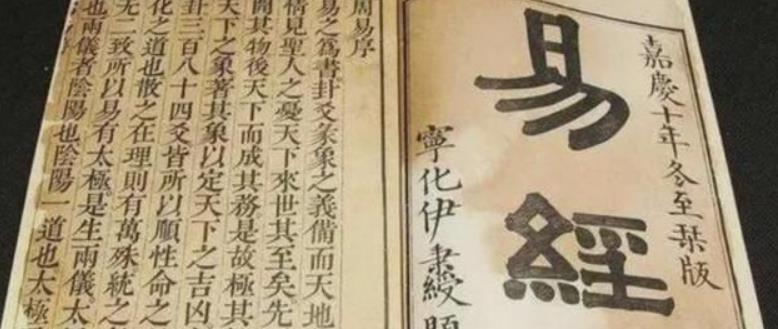 嘉慶十年冬至栞版
易經
寧化伊秉綬題
周易序
易之為書卦爻彖象之義備而天地
情見聖人之憂天下來世其至矣先
開其物後天下而成其務是故極其
天下之象著其象以定天下之吉凶
卦三百八十四爻皆所以順性命之
化之道也散之在理則有萬殊統之
无二致所以易有太極是生兩儀太
也兩儀者陰陽也陰陽一道也太極